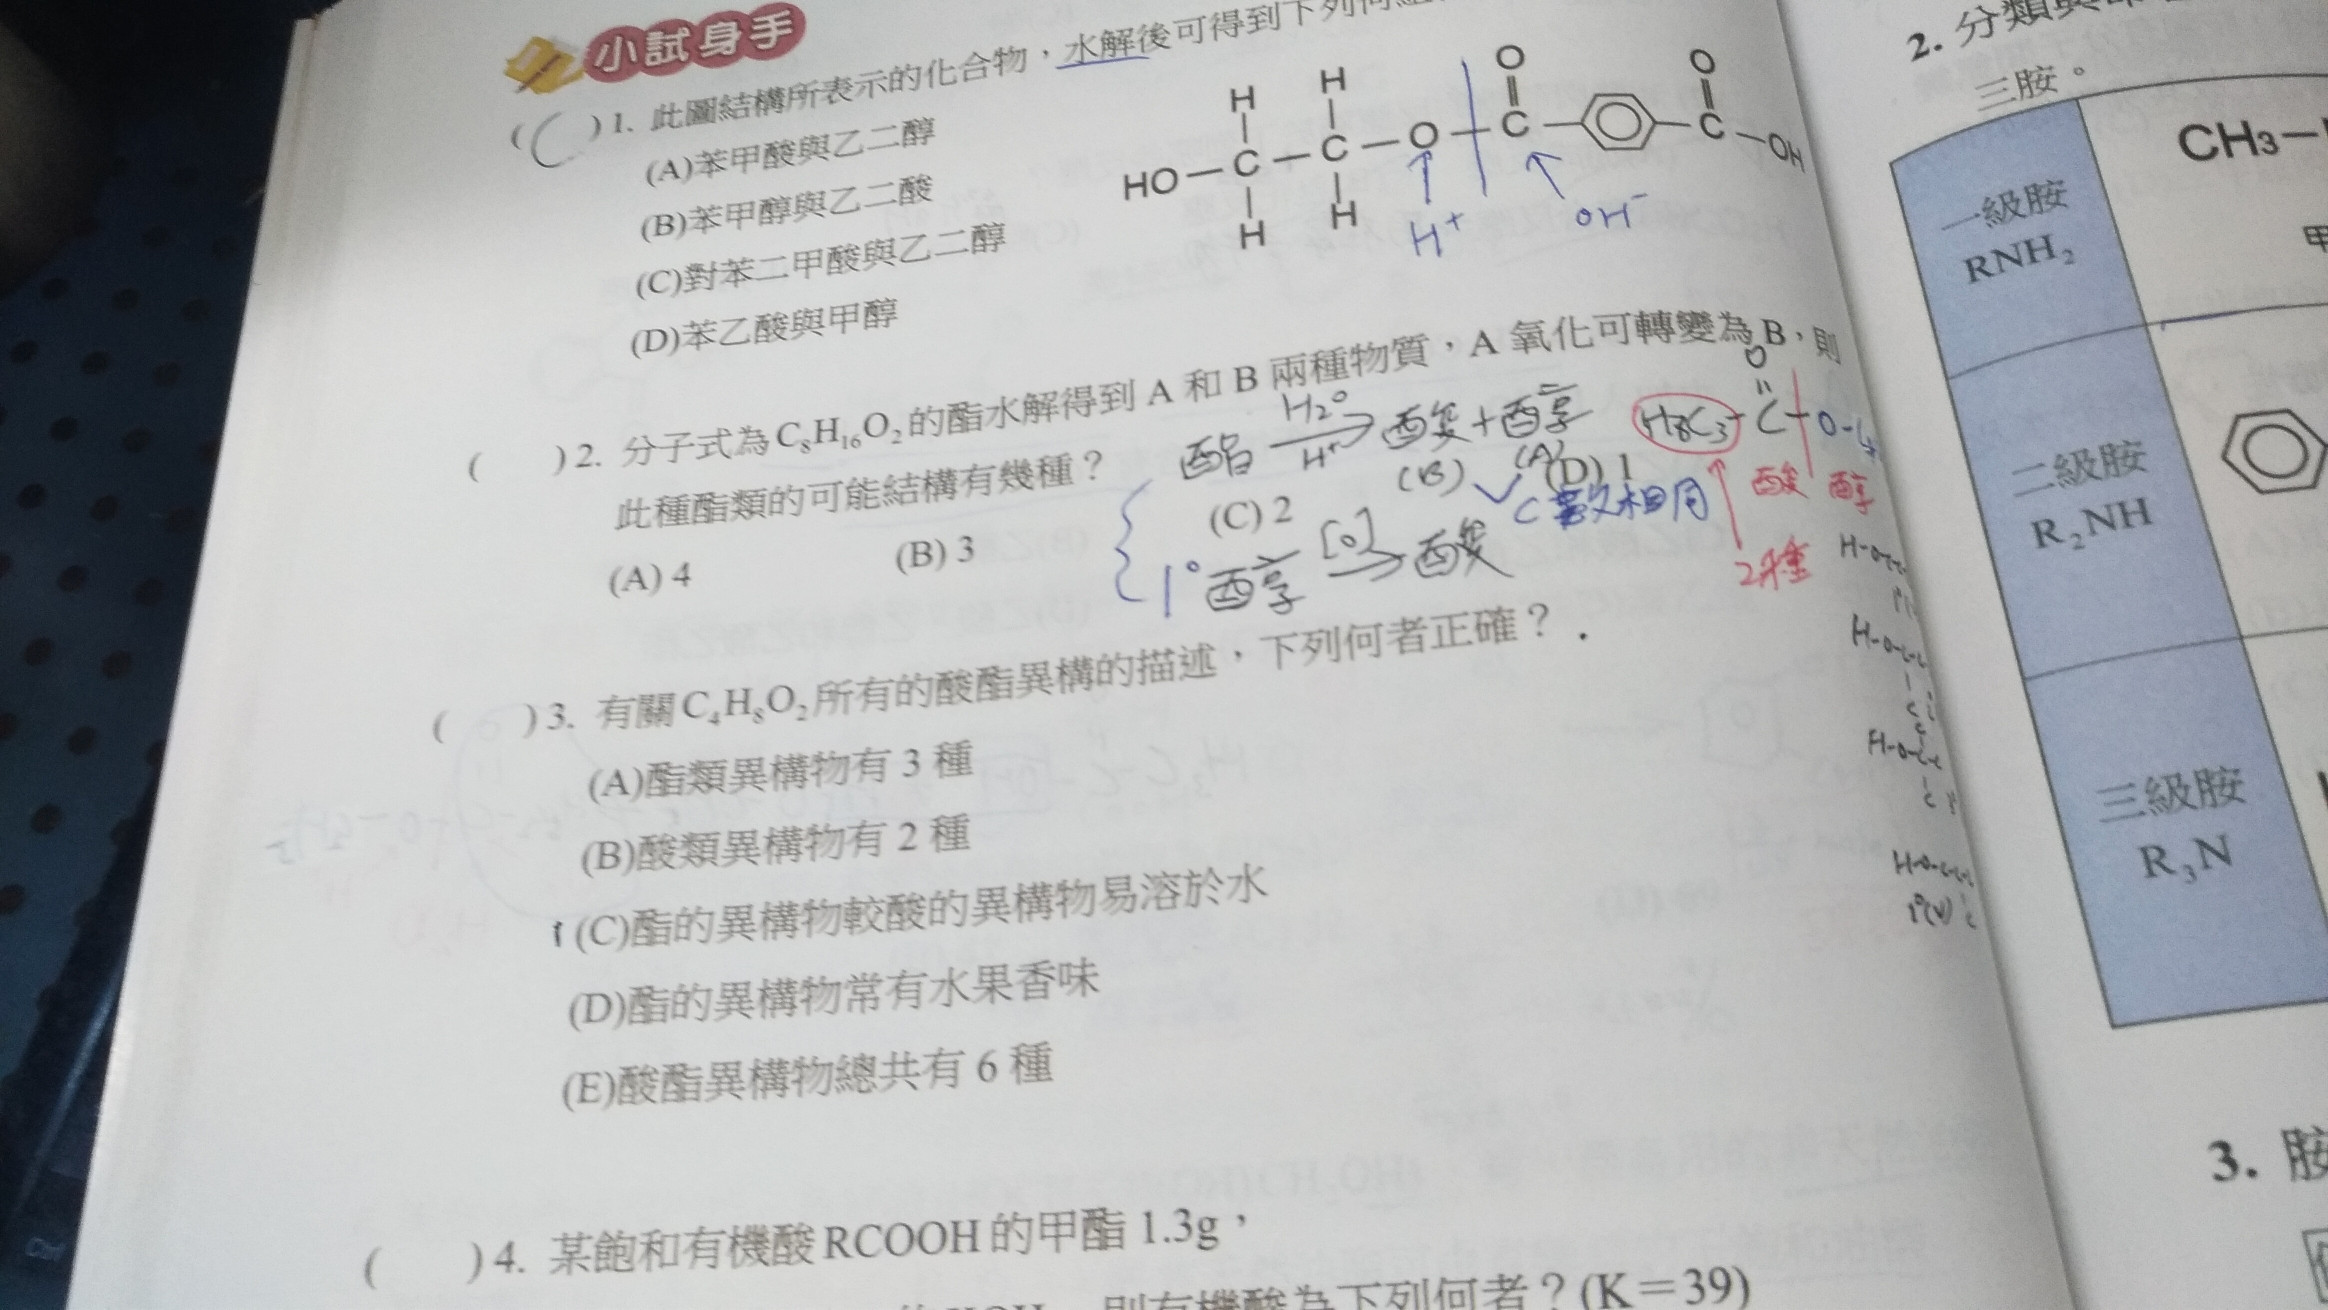 小試身手
( C ) 1. 此圖結構所表示的化合物，水解後可得到下列何
(A)苯甲酸與乙二醇
(B)苯甲醇與乙二酸
(C)對苯二甲酸與乙二醇
(D)苯乙酸與甲醇
H H O O
HO—C—C—O—C— —C—OH
H H
H⁺ OH⁻
( ) 2. 分子式為C₈H₁₆O₂的酯水解得到 A 和 B 兩種物質，A 氧化可轉變為 B，則
此種酯類的可能結構有幾種？
(A) 4 (B) 3 (C) 2 (D) 1
酯 H₂O H⁺ → 酸+醇
(B) (A)
C數相同
1°醇 [O] → 酸
O
H₇C₃-C-O-C₄
酸 醇
2種
H-O-C-C
H-O-C-C
H-O-C-C
H-O-C-C-C
1°(v) C
( ) 3. 有關C₄H₈O₂所有的酸酯異構的描述，下列何者正確？
(A)酯類異構物有 3 種
(B)酸類異構物有 2 種
(C)酯的異構物較酸的異構物易溶於水
(D)酯的異構物常有水果香味
(E)酸酯異構物總共有 6 種
( ) 4. 某飽和有機酸RCOOH的甲酯 1.3g，
則有機酸為下列何者？(K＝39)
2. 分類
三胺。
一級胺
RNH₂
CH₃—
甲
二級胺
R₂NH
三級胺
R₃N
3. 胺